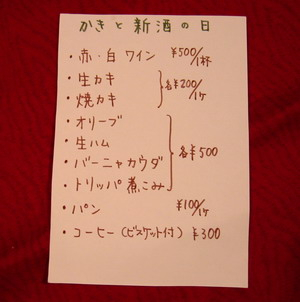 かきと新酒の日
・赤・白ワイン ¥500/1杯
・生カキ
・焼カキ
各¥200/1ケ
・オリーブ
・生ハム
・バーニャカウダ
・トリッパ煮こみ
各¥500
・パン ¥100/1ケ
・コーヒー(ビスケット付) ¥300